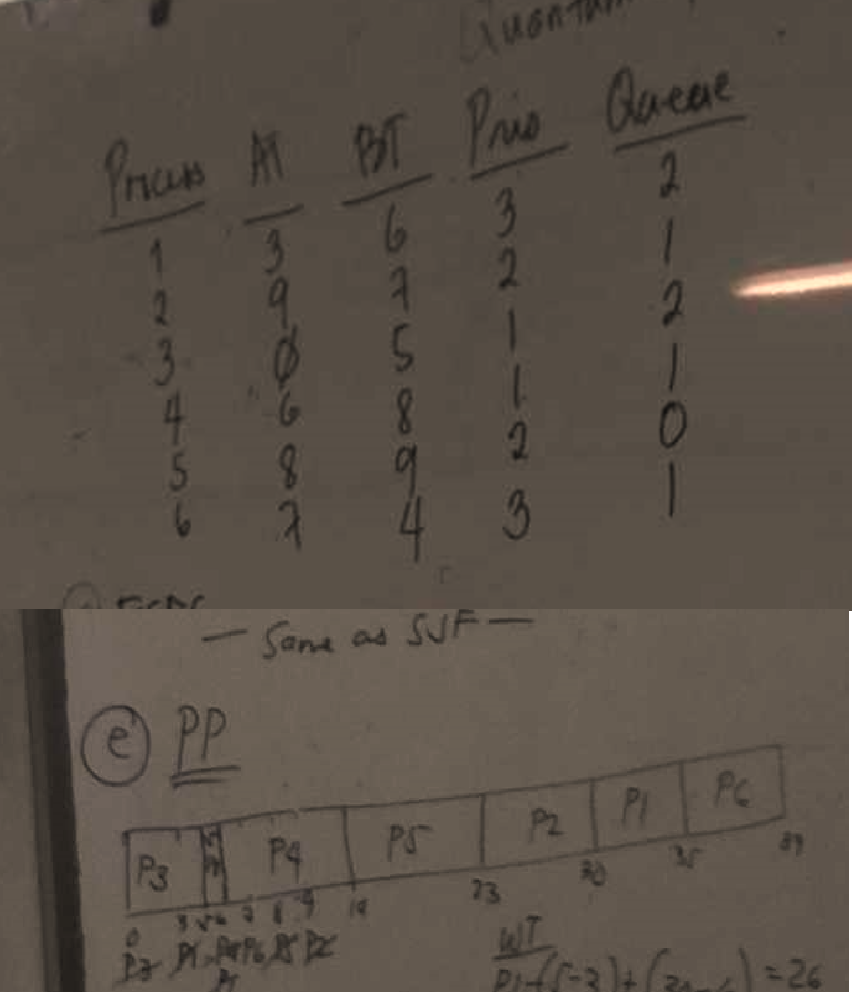 Quantum
Process AT BT Prio Queue
1 3 6 3 2
2 9 7 2 1
3 0 5 1 2
4 6 8 1 1
5 8 9 2 0
6 7 4 3 1
— Same as SJF —
(e) PP
P3 P4 P5 P2 P1 P6
0 3 5 6 7 8 9 14 23 30 35 39
WT